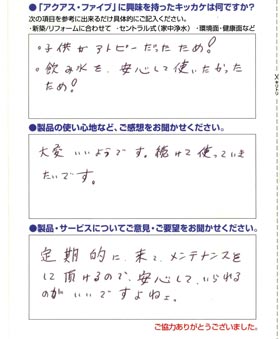 ●「アクアス・ファイブ」に興味を持ったキッカケは何ですか?
次の項目を参考に出来るだけ具体的にご記入ください。
・新築/リフォームに合わせて ・セントラル式(家中浄水) ・環境面・健康面など
・子供がアトピーだったため!
・飲み水を、安心して使いたかった
ため!
●製品の使い心地など、ご感想をお聞かせください。
大変いいようです。続けて使っていき
たいです。
●製品・サービスについてご意見・ご要望をお聞かせください。
定期的に、来て、メンテナンスを
して頂けるので、安心して、いられる
のがいいですよねェ。
ご協力ありがとうございました。